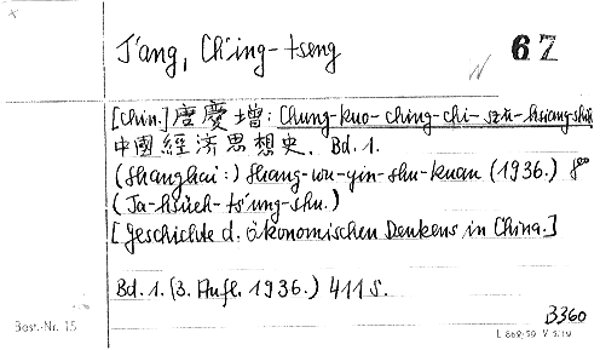 T'ang, Ch'ing-tseng
67
[Chin.] 唐慶增: Chung-kuo-ching-chi-szŭ-hsiang-shih
中國經濟思想史. Bd. 1.
(Shanghai:) Shang-wu-yin-shu-kuan (1936.) 8°
(Ta-hsüeh-ts'ung-shu.)
[Geschichte d. ökonomischen Denkens in China.]
Bd. 1. (3. Aufl. 1936.) 411 S.
B360
Best.-Nr. 15